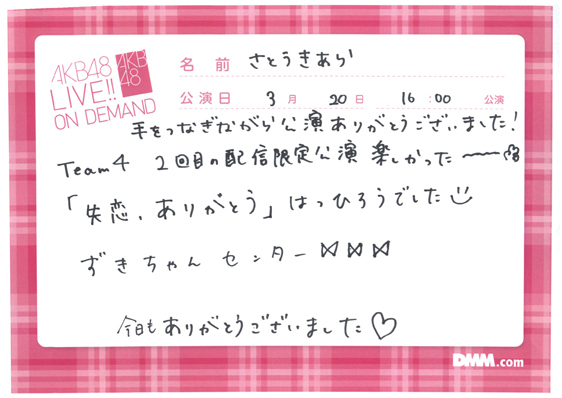 AKB48
LIVE!!
ON DEMAND
AKB
48
名 前 さとうきあら
公演日 3月 20日 16:00 公演
手をつなぎながら公演ありがとうございました!
Team4 2回目の配信限定公演 楽しかった〜〜
「失恋、ありがとう」はっひろうでした
ずきちゃん センター
今日もありがとうございました♡
DMM.com